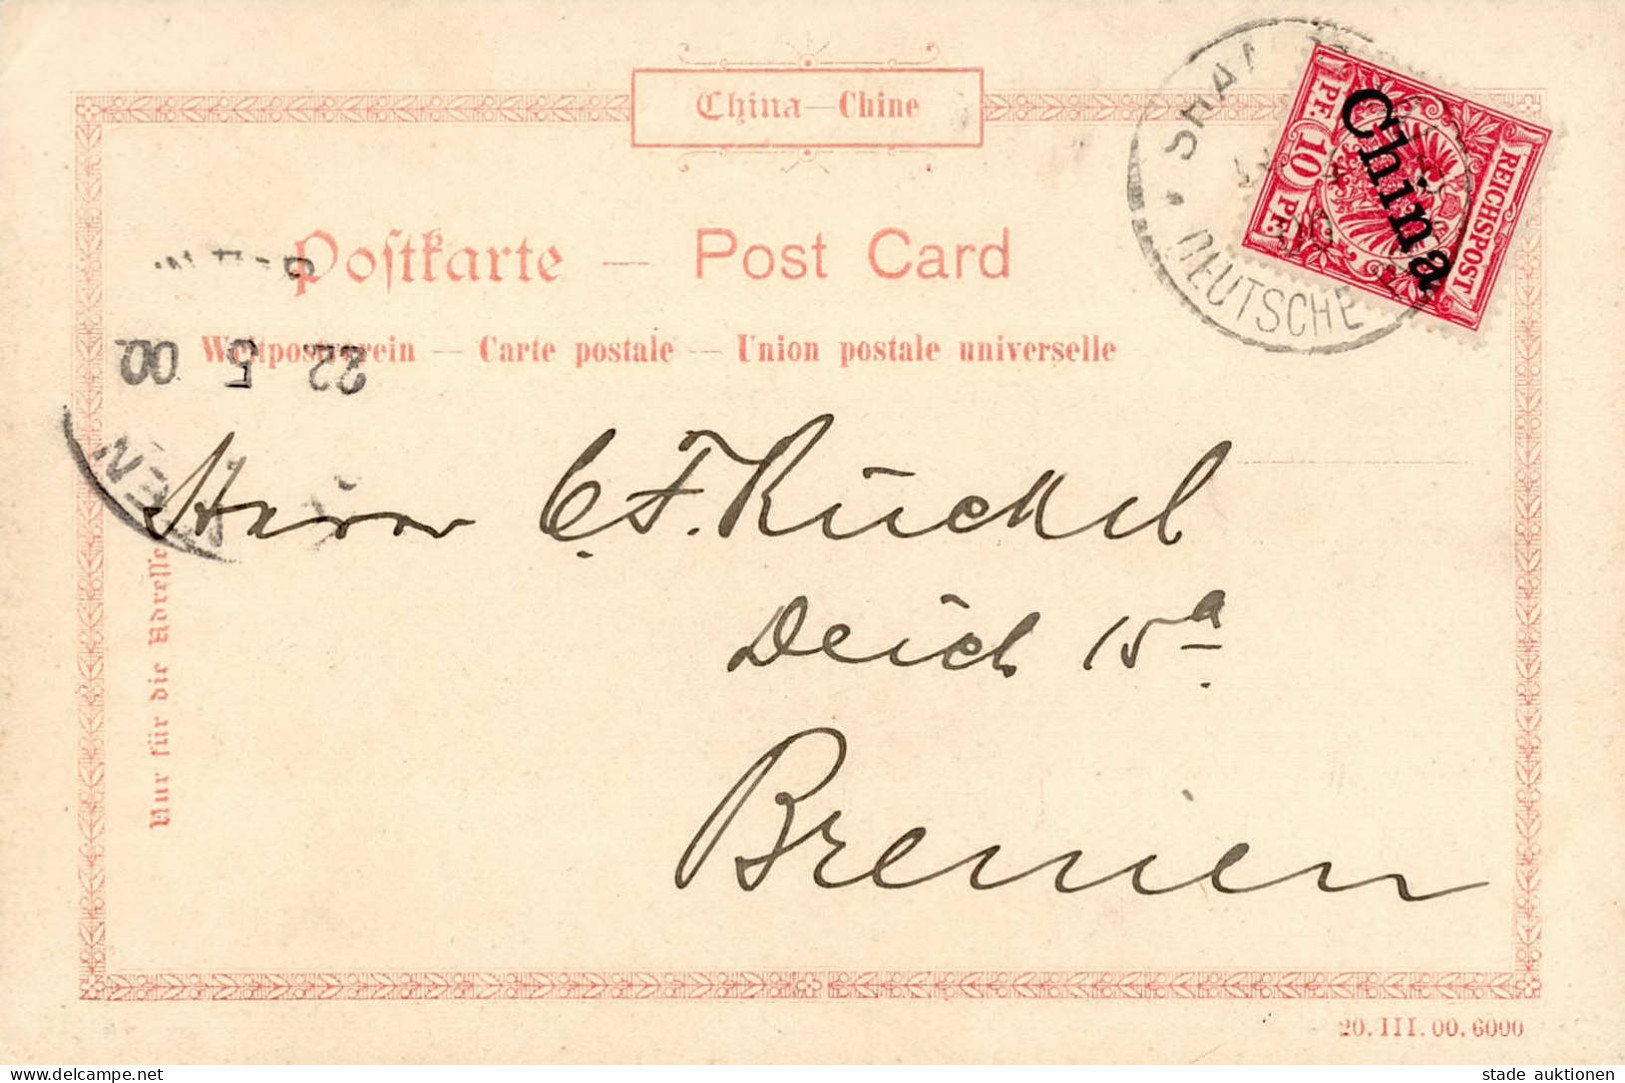 China — Chine
Postkarte — Post Card
Weltpostverein — Carte postale — Union postale universelle
REICHSPOST
10
PF. 10 PF.
China
DEUTSCHE
22 5 00
Herrn C. F. Rückel
Deich 15a
Bremen
Nur für die Adresse
20. III. 00. 6000
stade auktionen